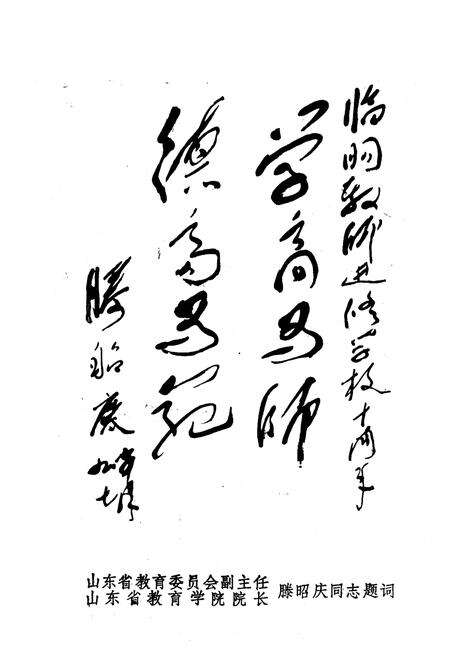 临朐教师进修学校十周年
学高为师
德高为范
滕昭庆
七月
山东省教育委员会副主任
山东省教育学院院长
滕昭庆同志题词